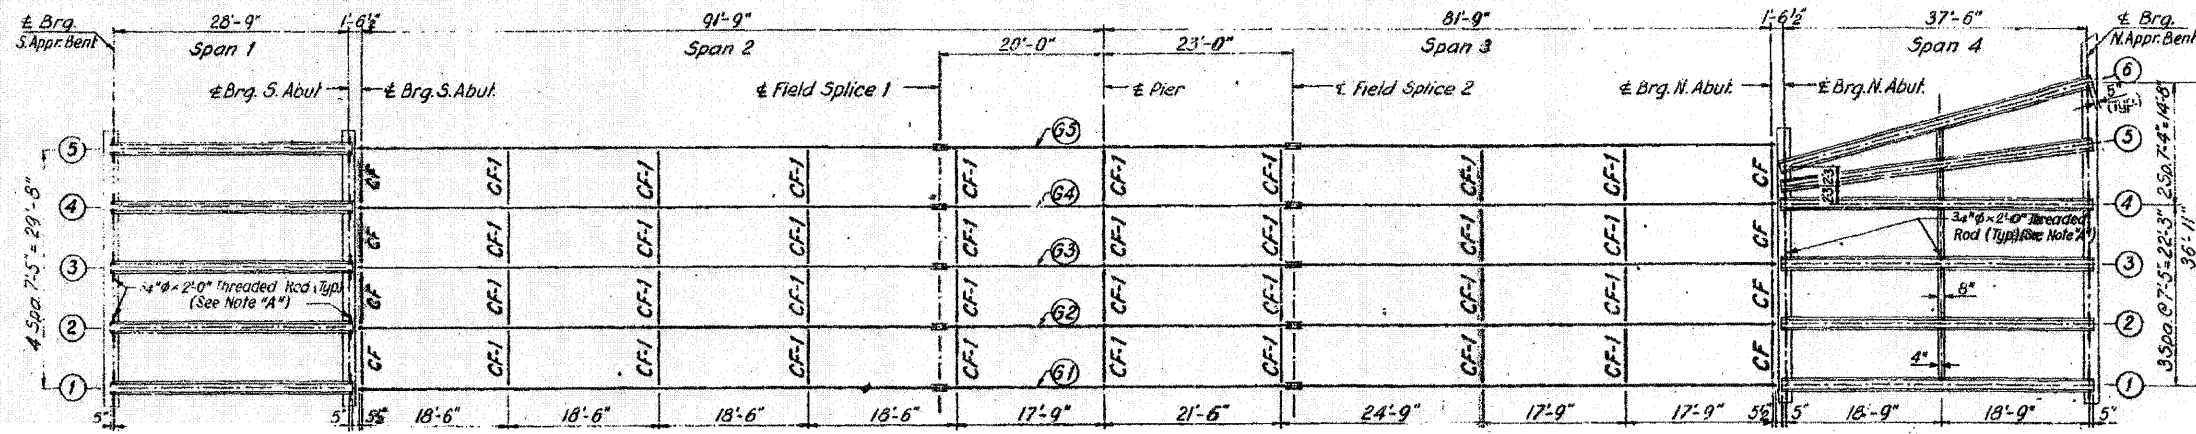 ℄ Brg.
S. Appr. Bent
28'-9"
1'-6½"
91'-9"
81'-9"
1'-6½"
37'-6"
℄ Brg.
N. Appr. Bent
Span 1
Span 2
20'-0"
23'-0"
Span 3
Span 4
℄ Brg. S. Abut.
℄ Brg. S. Abut.
℄ Field Splice 1
℄ Pier
℄ Field Splice 2
℄ Brg. N. Abut.
℄ Brg. N. Abut.
6
5"
(Typ.)
5
4
3
2
1
4 Spa. 7'-5" = 29'-8"
¾"φ × 2'-0" Threaded Rod (Typ.)
(See Note "A")
G5
G4
G3
G2
G1
CF
CF-1
CF-1
CF-1
CF-1
CF-1
CF-1
CF-1
CF-1
CF
CF
CF-1
CF-1
CF-1
CF-1
CF-1
CF-1
CF-1
CF-1
CF
CF
CF-1
CF-1
CF-1
CF-1
CF-1
CF-1
CF-1
CF-1
CF
CF
CF-1
CF-1
CF-1
CF-1
CF-1
CF-1
CF-1
CF-1
CF
23 23
¾"φ × 2'-0" Threaded
Rod (Typ.) (See Note "A")
8"
4"
5
4
3
2
1
2 Spa. 7'-4" = 14'-8"
3 Spa. @ 7'-5" = 22'-3"
36'-11"
5"
5"
5½"
18'-6"
18'-6"
18'-6"
18'-6"
17'-9"
21'-6"
24'-9"
17'-9"
17'-9"
5½"
5"
18'-9"
18'-9"
5"